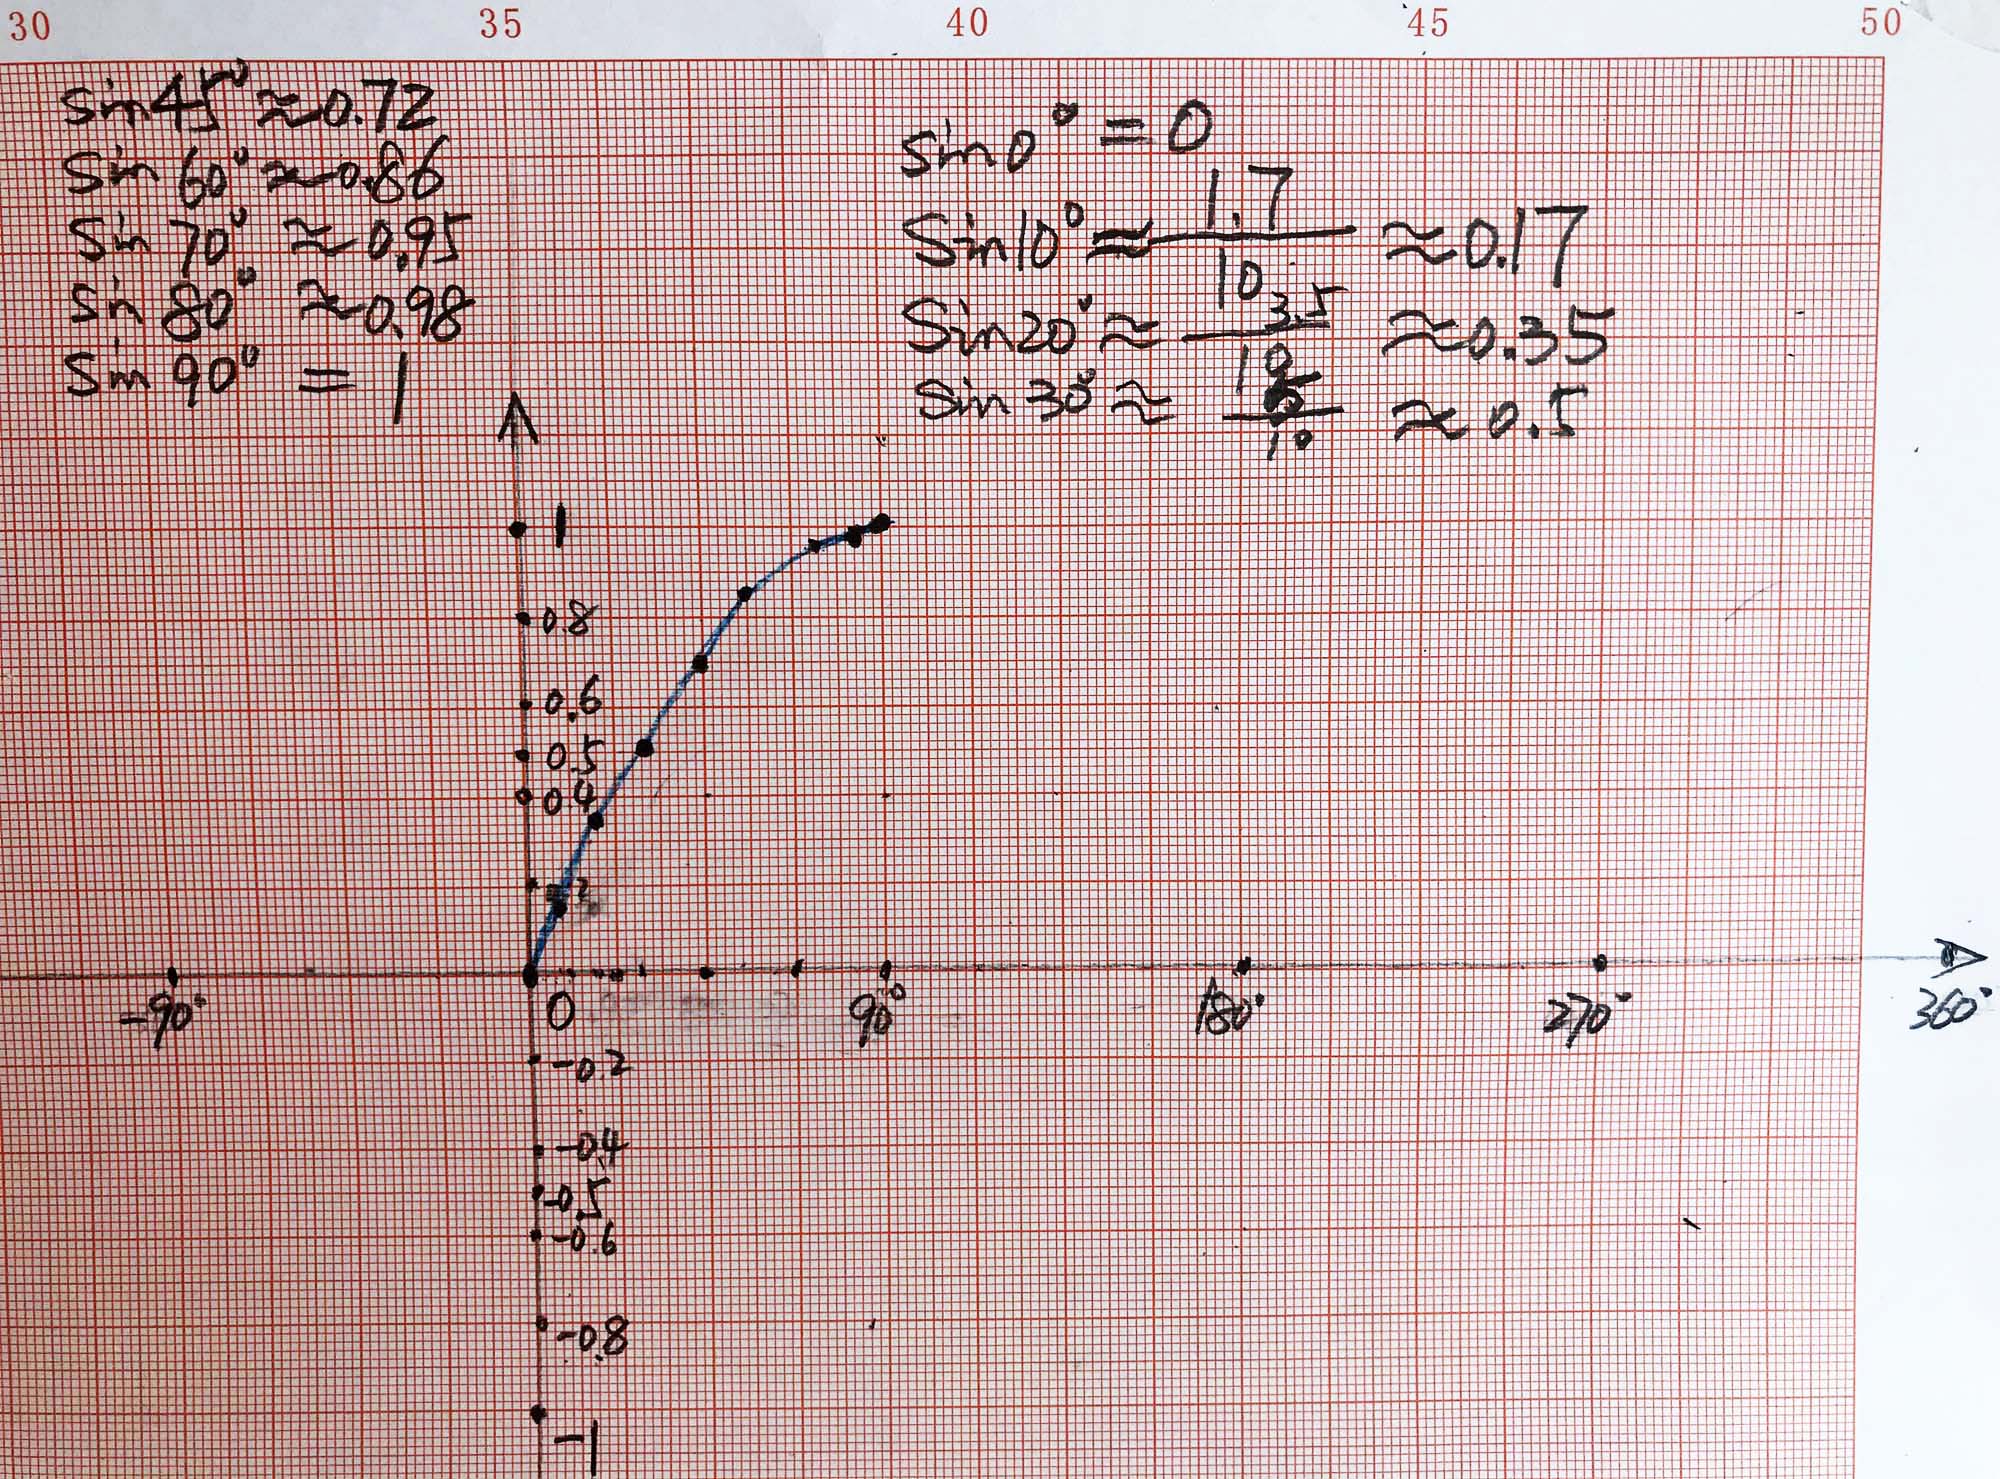 30 35 40 45 50
sin45°≈0.72
sin 60°≈0.86
sin 70° ≈0.95
sin 80° ≈0.98
sin 90° = 1
sin0°=0
sin10°≈1.7/10 ≈0.17
sin20°≈3.5/10 ≈0.35
sin30°≈5/10 ≈0.5
1
0.8
0.6
0.5
0.4
-90° 0 90° 180° 270° 360°
-0.2
-0.4
-0.5
-0.6
-0.8
-1